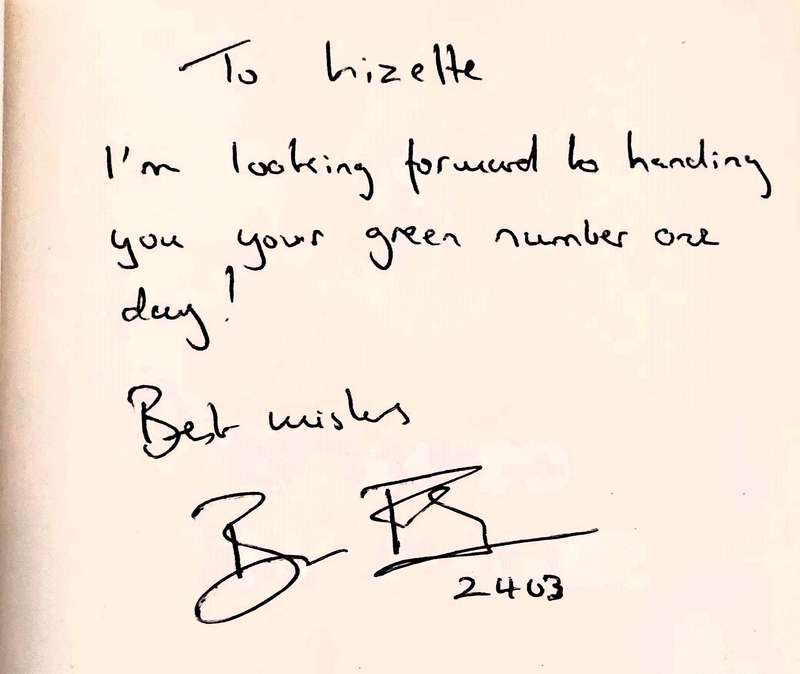 To Lizette
I'm looking forward to handing
you your green number one
day!
Best wishes
2403